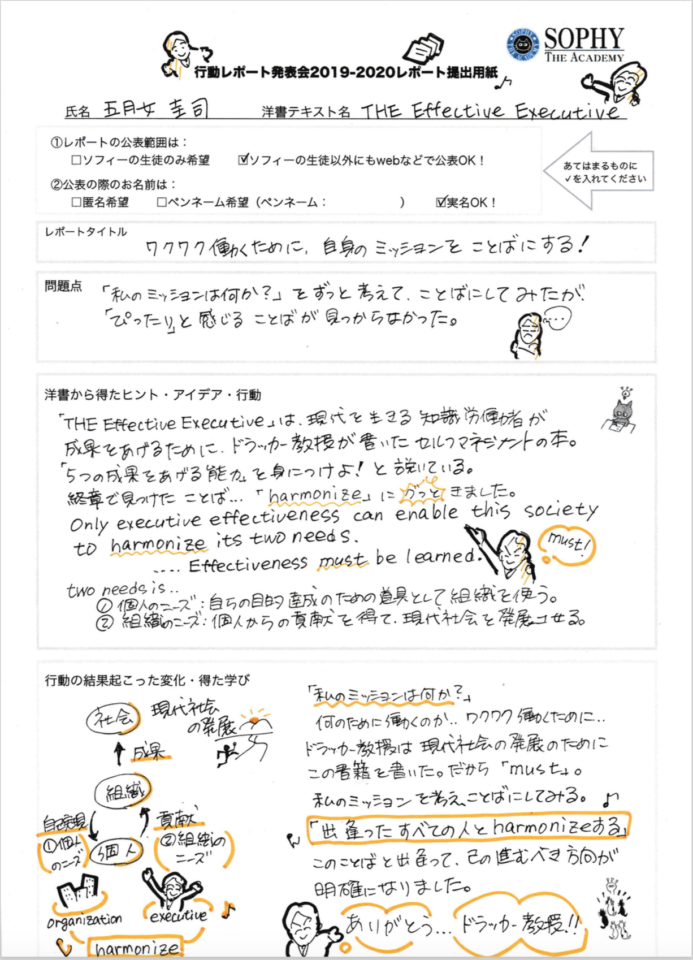 SOPHY
THE ACADEMY
行動レポート発表会2019-2020レポート提出用紙
氏名 五月女 圭司 洋書テキスト名 THE Effective Executive
①レポートの公表範囲は:
□ソフィーの生徒のみ希望 ☑ソフィーの生徒以外にもwebなどで公表OK!
②公表の際のお名前は:
□匿名希望 □ペンネーム希望(ペンネーム: ) ☑実名OK!
あてはまるものに
✓を入れてください
レポートタイトル
ワクワク働くために、自身のミッションをことばにする!
問題点
「私のミッションは何か?」をずっと考えて、ことばにしてみたが、
「ぴったり」と感じることばが見つからなかった。
...
洋書から得たヒント・アイデア・行動
「THE Effective Executive」は、現代を生きる知識労働者が
成果をあげるために、ドラッカー教授が書いたセルフマネジメントの本。
「5つの成果をあげる能力」を身につけよ!と説いている。
終章で見つけたことば...「harmonize」にグッときました。
Only executive effectiveness can enable this society
to harmonize its two needs.
.... Effectiveness must be learned.
must!
two needs is..
①個人のニーズ:自らの目的達成のための道具として組織を使う。
②組織のニーズ:個人からの貢献を得て、現代社会を発展させる。
行動の結果起こった変化・得た学び
社会 現代社会
の発展
成果
組織
自己実現
①個人
のニーズ
個人
貢献
②組織の
ニーズ
organization
executive
harmonize
「私のミッションは何か?」
何のために働くのか..ワクワク働くために...
ドラッカー教授は現代社会の発展のために
この書籍を書いた。だから「must」。
私のミッションを考えことばにしてみる。
「出逢ったすべての人とharmonizeする」
このことばと出逢って、己の進むべき方向が
明確になりました。
ありがとう... ドラッカー教授!!